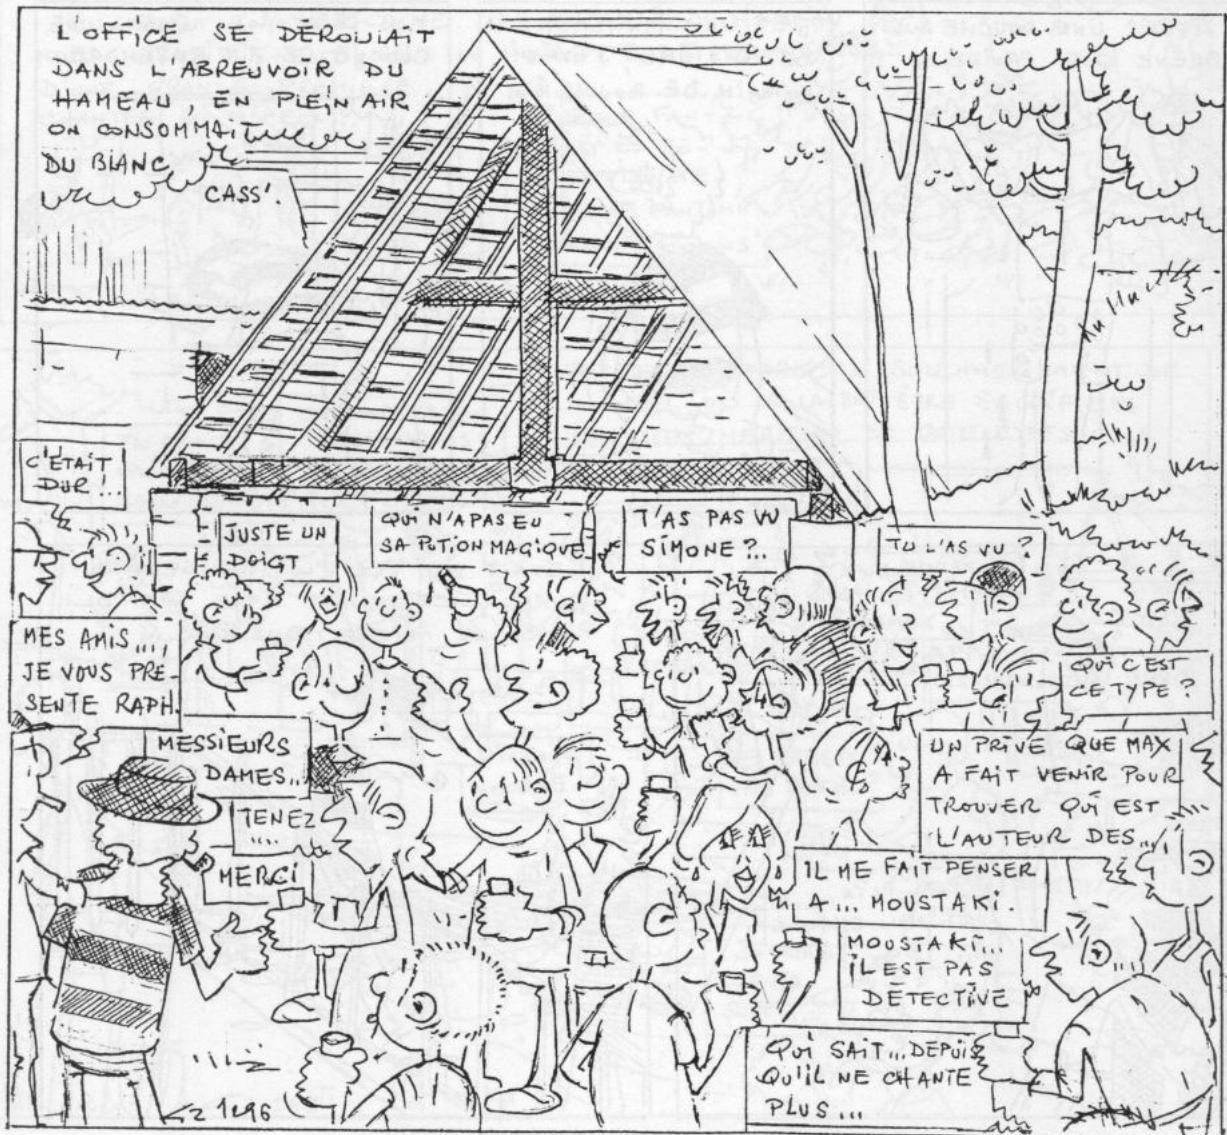 L'OFFICE SE DEROULAIT
DANS L'ABREUVOIR DU
HAMEAU, EN PLEIN AIR
ON CONSOMMAIT
DU BLANC
CASS'.
C'ETAIT
DUR...
JUSTE UN
DOIGT
QUI N'A PAS EU
SA POTION MAGIQUE
T'AS PAS VU
SIMONE ?...
TU L'AS VU ?
MES AMIS....,
JE VOUS PRE_
SENTE RAPH.
MESSIEURS
DAMES...
TENEZ
....
MERCI
QUI C'EST
CE TYPE ?
UN PRIVE QUE MAX
A FAIT VENIR POUR
TROUVER QUI EST
L'AUTEUR DES...
IL ME FAIT PENSER
A... MOUSTAKI.
MOUSTAKI...
IL EST PAS
DÉTECTIVE
QUI SAIT... DEPUIS
QU'IL NE CHANTE
PLUS...